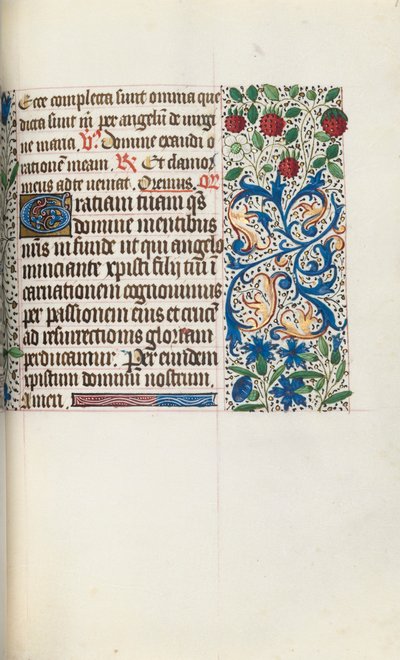 Ecce completa sunt omnia que
dicta sunt m̄ per angelū de virgi
ne maria. V̄s Domine exaudi o
rationē meam. R Et clamor
meus ad te veniat. Oremus. Or
Gratiam tuam q̄s
domine mentibus
nr̄is infunde ut qui angelo
nunciante xpisti filij tui i
carnationem cognovimus
per passionem eius et crucē
ad resurrectionis gloriam
perducamur. Per eundem
xpistum dominum nostrum.
Amen.